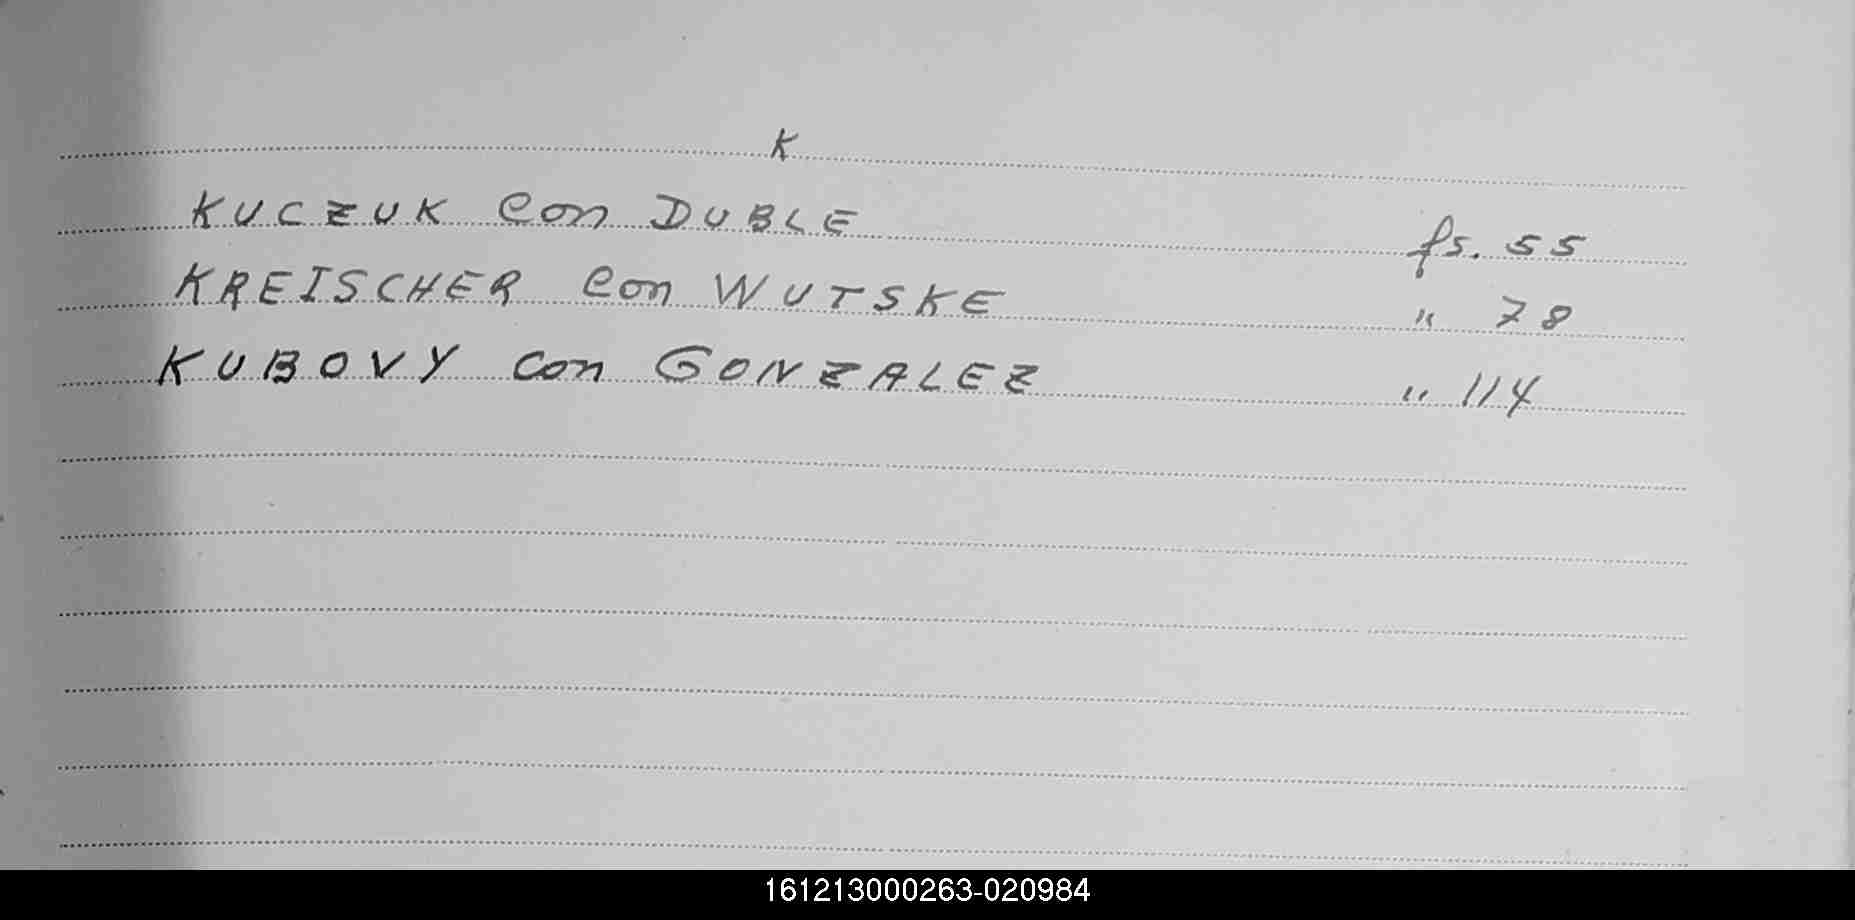 K
KUCZUK con DUBLE fs. 55
KREISCHER con WUTSKE " 78
KUBOVY con GONZALEZ " 114
161213000263-020984